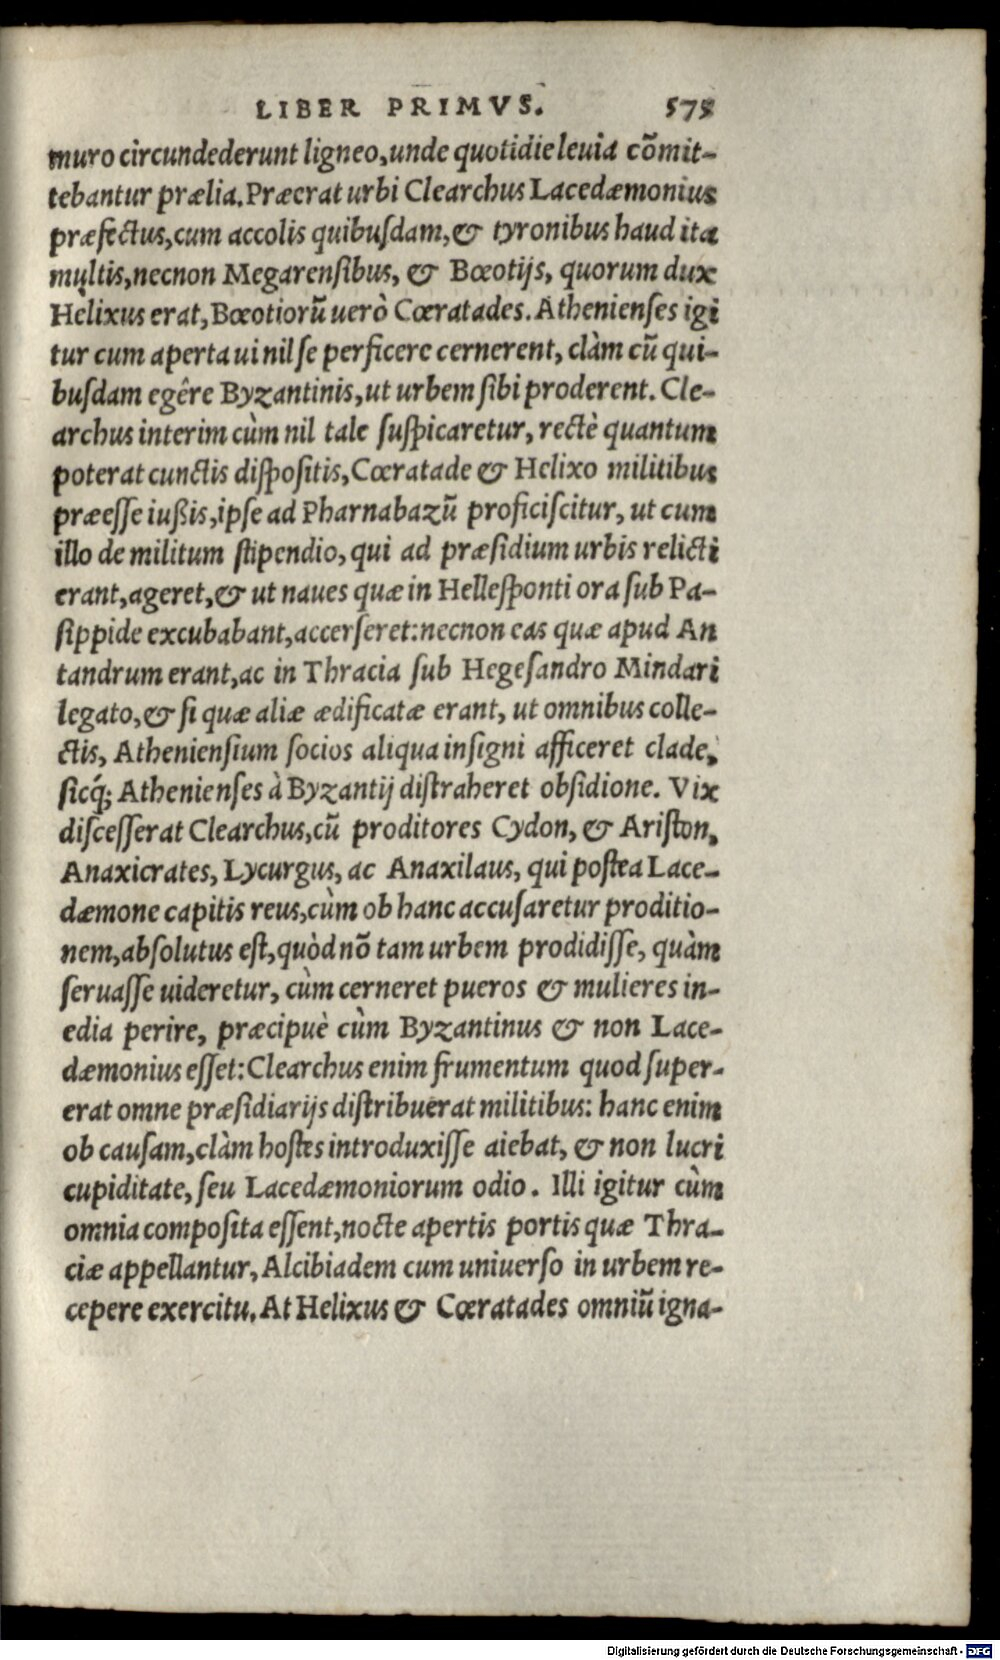 LIBER PRIMVS. 575
muro circundederunt ligneo, unde quotidie leuia cõmit-
tebantur prælia. Præerat urbi Clearchus Lacedæmonius
præfectus, cum accolis quibusdam, & tyronibus haud ita
multis, necnon Megarensibus, & Bœotijs, quorum dux
Helixus erat, Bœotiorũ uerò Cœratades. Athenienses igi
tur cum aperta ui nil se perficere cernerent, clàm cũ qui-
busdam egêre Byzantinis, ut urbem sibi proderent. Cle-
archus interim cùm nil tale suspicaretur, rectè quantum
poterat cunctis dispositis, Cœratade & Helixo militibus
præesse iußis, ipse ad Pharnabazũ proficiscitur, ut cum
illo de militum stipendio, qui ad præsidium urbis relicti
erant, ageret, & ut naues quæ in Hellesponti ora sub Pa-
sippide excubabant, accerseret: necnon eas quæ apud An
tandrum erant, ac in Thracia sub Hegesandro Mindari
legato, & si quæ aliæ ædificatæ erant, ut omnibus colle-
ctis, Atheniensium socios aliqua insigni afficeret clade,
sicq́; Athenienses à Byzantij distraheret obsidione. Vix
discesserat Clearchus, cũ proditores Cydon, & Ariston,
Anaxicrates, Lycurgus, ac Anaxilaus, qui postea Lace-
dæmone capitis reus, cùm ob hanc accusaretur proditio-
nem, absolutus est, quòd nõ tam urbem prodidisse, quàm
seruasse uideretur, cùm cerneret pueros & mulieres in-
edia perire, præcipuè cùm Byzantinus & non Lace-
dæmonius esset: Clearchus enim frumentum quod super-
erat omne præsidiarijs distribuerat militibus: hanc enim
ob causam, clàm hostes introduxisse aiebat, & non lucri
cupiditate, seu Lacedæmoniorum odio. Illi igitur cùm
omnia composita essent, nocte apertis portis quæ Thra-
ciæ appellantur, Alcibiadem cum uniuerso in urbem re-
cepere exercitu. At Helixus & Cœratades omniũ igna-
Digitalisierung gefördert durch die Deutsche Forschungsgemeinschaft - DFG